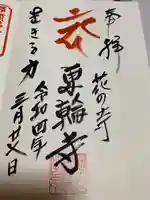 奉拝
花の寺
東輪寺
生きる力
令和四年
三月廿八日